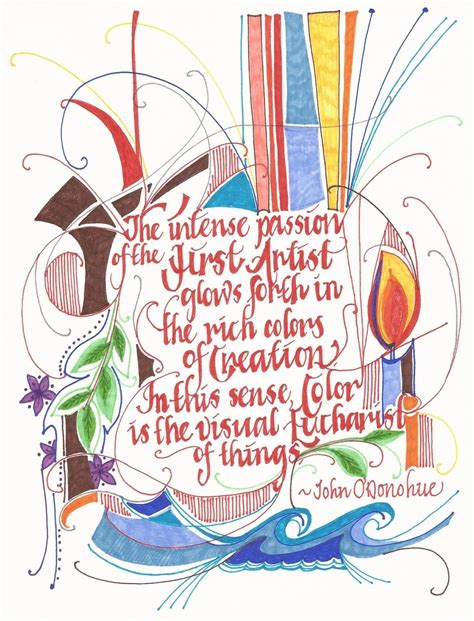 The intense passion
of the First Artist
glows forth in
the rich colors
of Creation
In this sense, Color
is the visual Eucharist
of things
~John O'Donohue